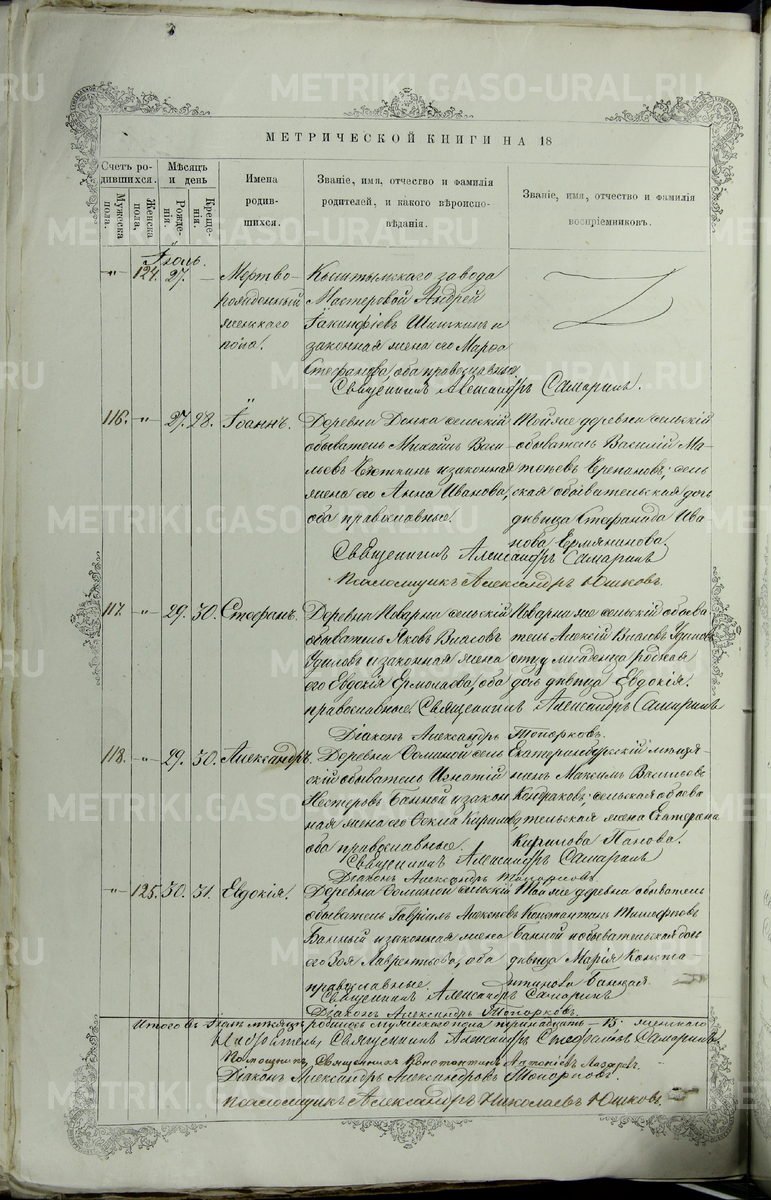 METRIKI.GASO-URAL.RU
МЕТРИЧЕСКОЙ КНИГИ НА 18
Счетъ родившихся.
Мужеска пола.
Женска пола.
Мѣсяцъ и день
Рожденія.
Крещенія.
Имена родившихся.
Званіе, имя, отчество и фамилія родителей, и какого вѣроисповѣданія.
Званіе, имя, отчество и фамилія воспріемниковъ.
Іюль.
„ 124. 27. —
Мертворожденный женскаго пола.
Кыштымскаго завода
Мастеровой Андрей
Іакинфіевъ Шишкинъ и
законная жена его Марѳа
Стефанова, оба православные
Священникъ Александръ Самаринъ.
116. „ 27. 28. Іоаннъ.
обыватель Михаилъ Васи-
льевъ и законная
жена его Анна Иванова,
оба православные.
Той же деревни сельскій
обыватель Василій
Черепановъ; сель-
ская обывательская дочь
дѣвица Стефанида Ива-
нова
Священникъ Александръ Самаринъ
Псаломщикъ Александръ Юшковъ.
117. „ 29. 30. Стефанъ.
Деревни Поварни сельскій
обыватель Яковъ Власовъ
и законная жена
его Евдокія Ермолаева, оба
православные.
Поварни же сельскій обыва
тель Алексій Власовъ
отцу младенца родная
дочь дѣвица Евдокія.
Священникъ Александръ Самаринъ
Діаконъ Александръ Топорковъ.
118. „ 29. 30. Александръ.
Деревни Соминой сель
скій обыватель Игнатій
Нестеровъ Банной и закон
ная жена его Кирилова
оба православные.
Екатеринбургскій мѣща-
нинъ Максимъ Васильевъ
Кондаковъ; сельская обыва
тельская жена Екатерина
Кирилова Панова.
Священникъ Александръ Самаринъ
Діаконъ Александръ Топорковъ.
„ 125. 30. 31. Евдокія.
Деревни Соминой сельскій
обыватель Гавріилъ Алексѣевъ
Банный и законная жена
его Зоя Лаврентьева, оба
православные.
Той же деревни обыватель
Константинъ
Банной и обывательская дочь
дѣвица Марія Конста
нтинова Банная.
Священникъ Александръ Самаринъ
Діаконъ Александръ Топорковъ.
Итого въ Іюлѣ мѣсяцѣ родилось мужескаго пола тринадцать — 13; женскаго
Священникъ Александръ Стефановъ Самаринъ
Помощникъ, Священникъ Константинъ Антоніевъ Лазаревъ.
Діаконъ Александръ Александровъ Топорковъ.
Псаломщикъ Александръ Николаевъ Юшковъ